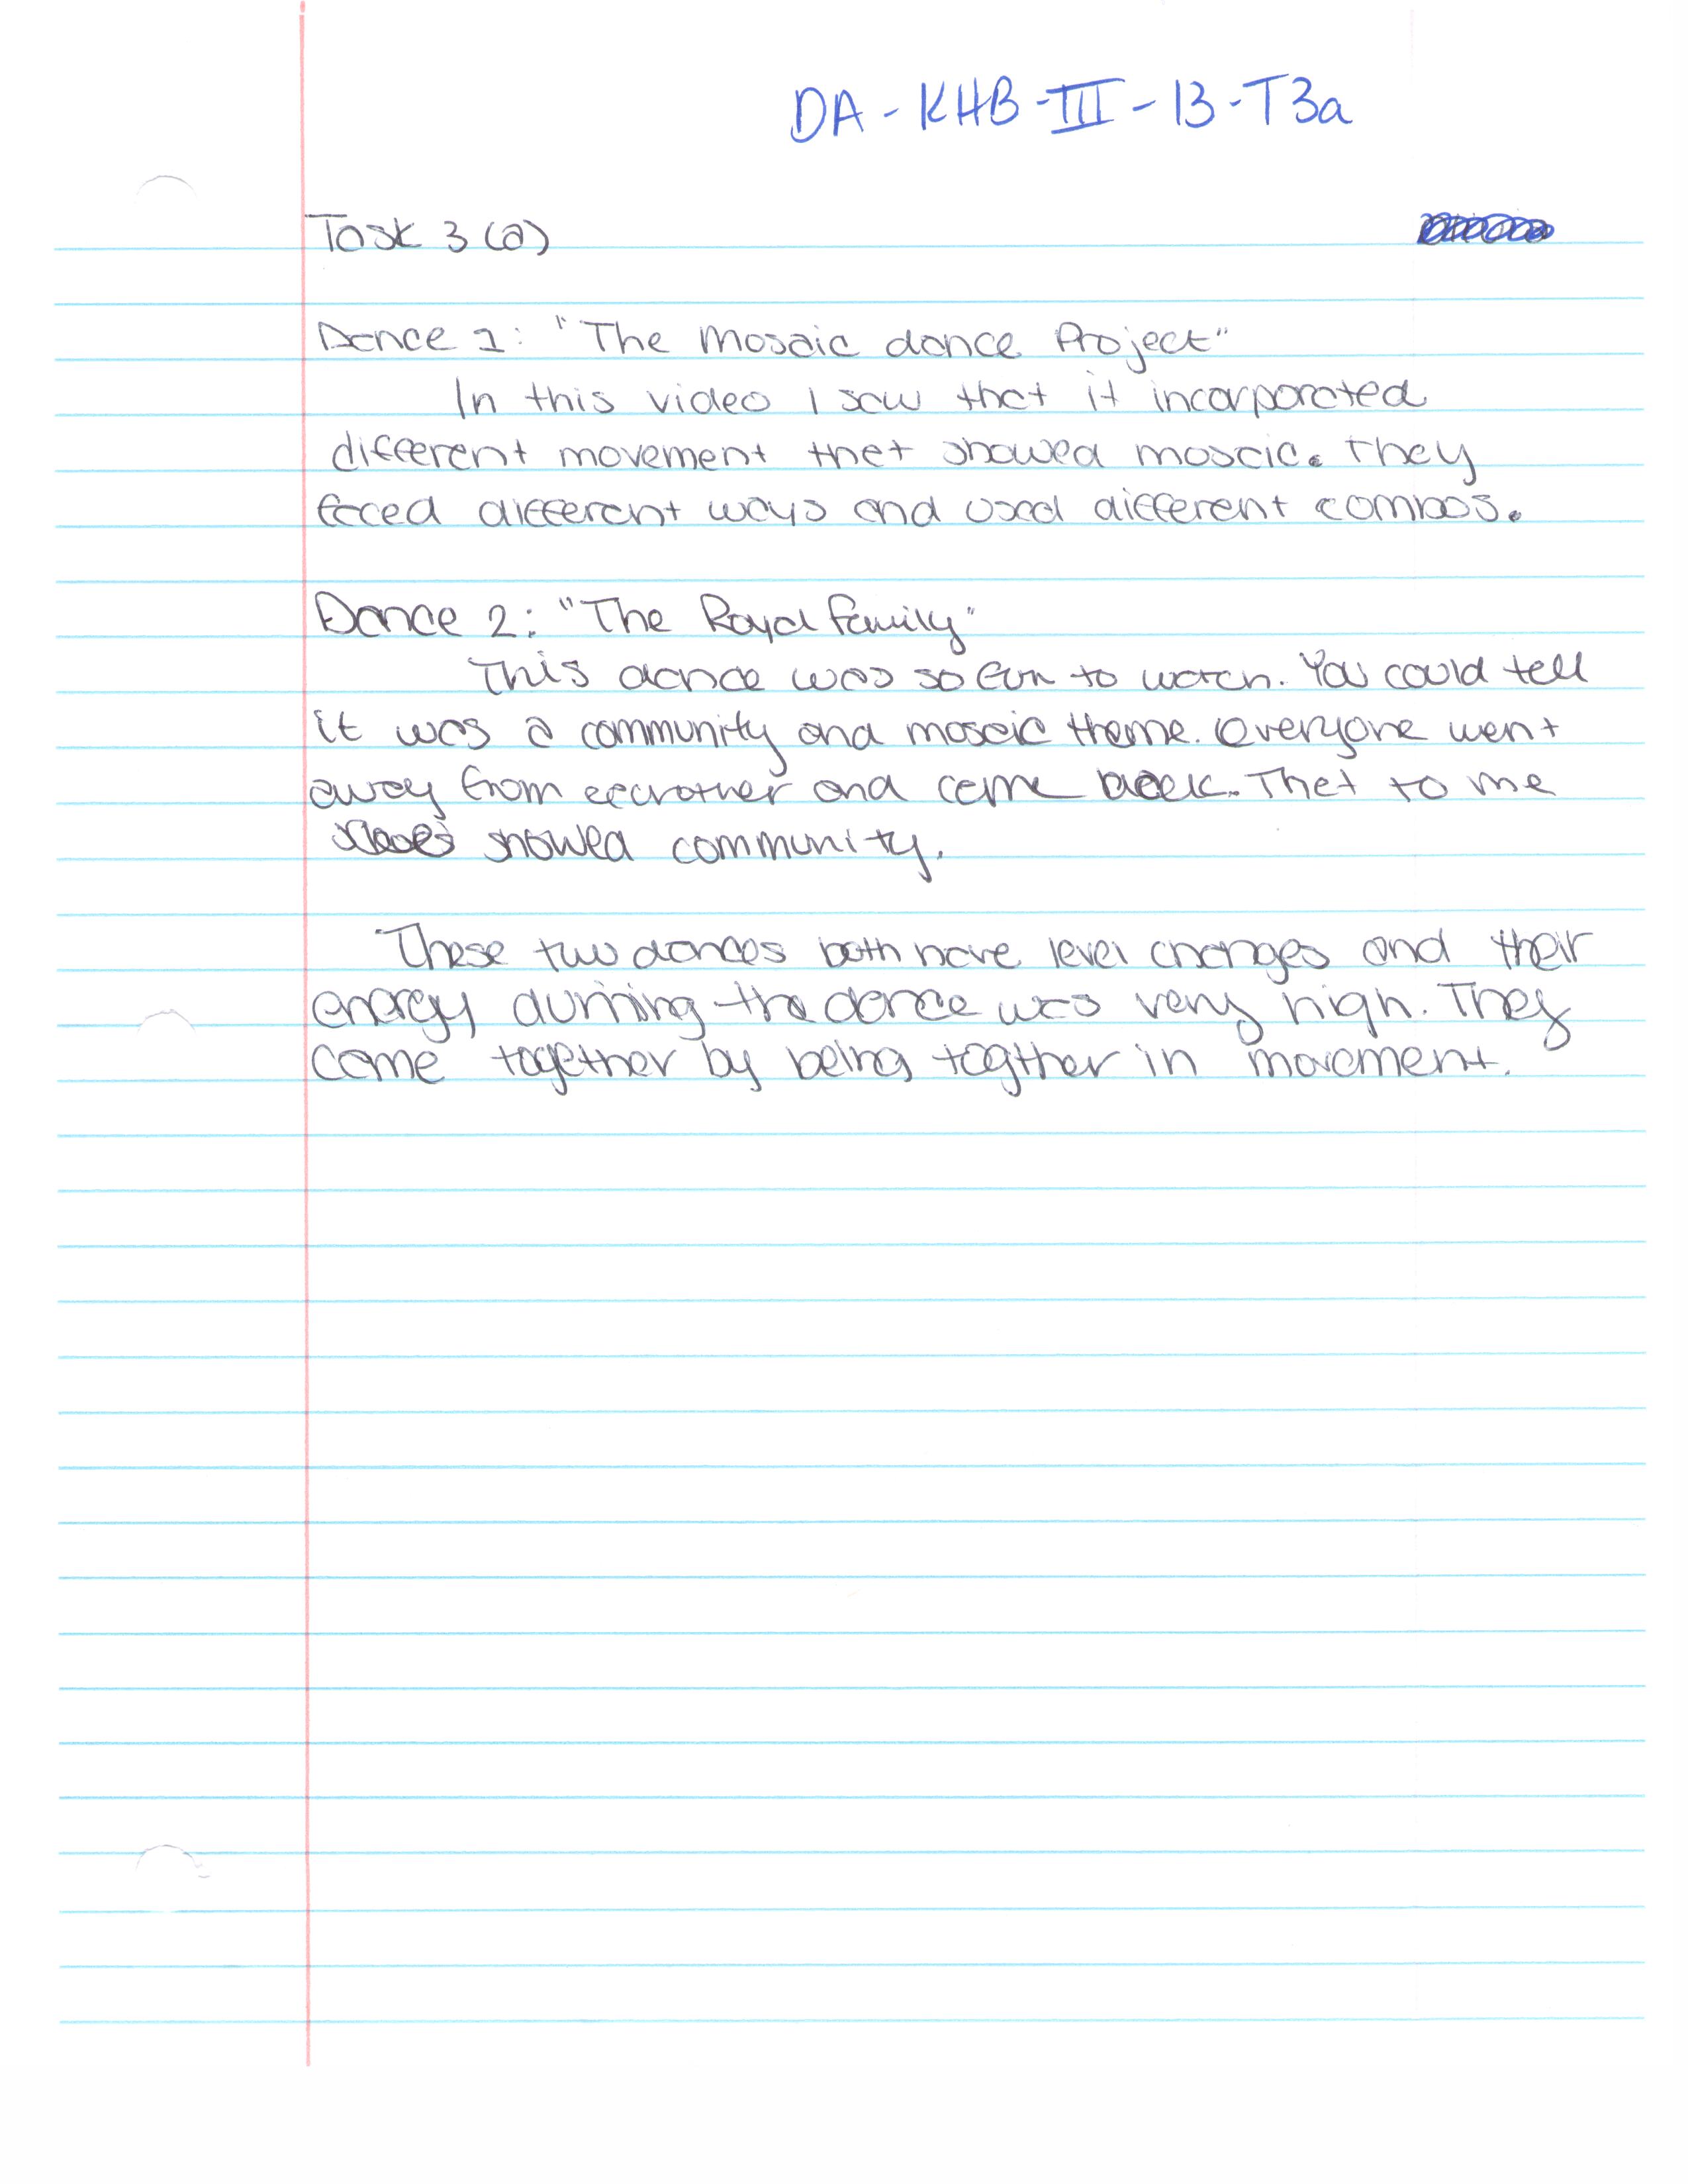 DA-KHB-III-13-T3a
Task 3 (a)
Dance 1: "The Mosaic dance Project"
In this video I saw that it incorporated
different movement that showed mosaic. They
faced different ways and used different combos.
Dance 2: "The Royal Family"
This dance was so fun to watch. You could tell
it was a community and mosaic theme. Everyone went
away from eachother and came back. That to me
showed community.
These two dances both have level changes and their
energy durning the dance was very high. They
came together by being togther in movement.